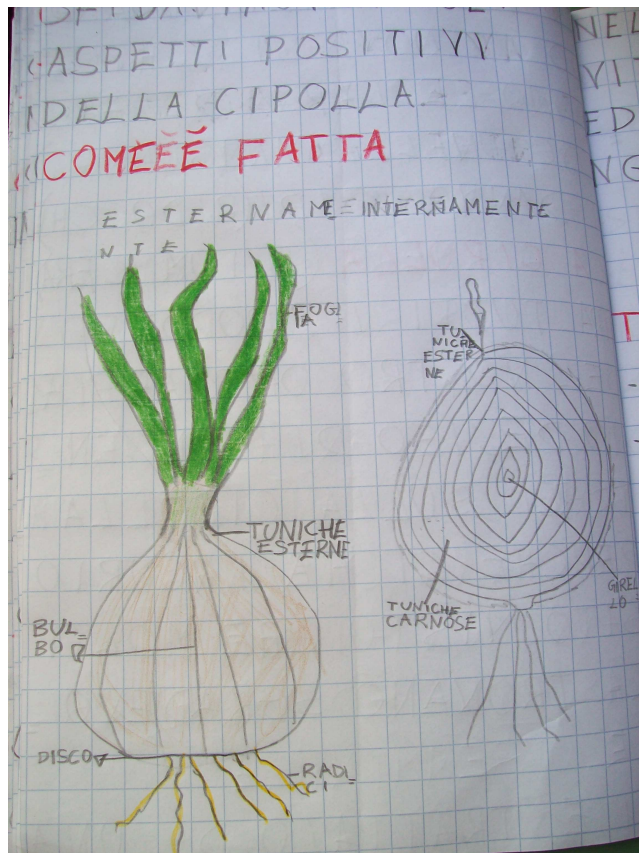 ASPETTI POSITIVI
DELLA CIPOLLA.
COM'È È FATTA
ESTERNAME=
NTE
INTERNAMENTE
FOGL
IA
TU
NICHE
ESTER
NE
TUNICHE
ESTERNE
BUL=
BO
TUNICHE
CARNOSE
GIREL
LO
DISCO
RADI=
CI